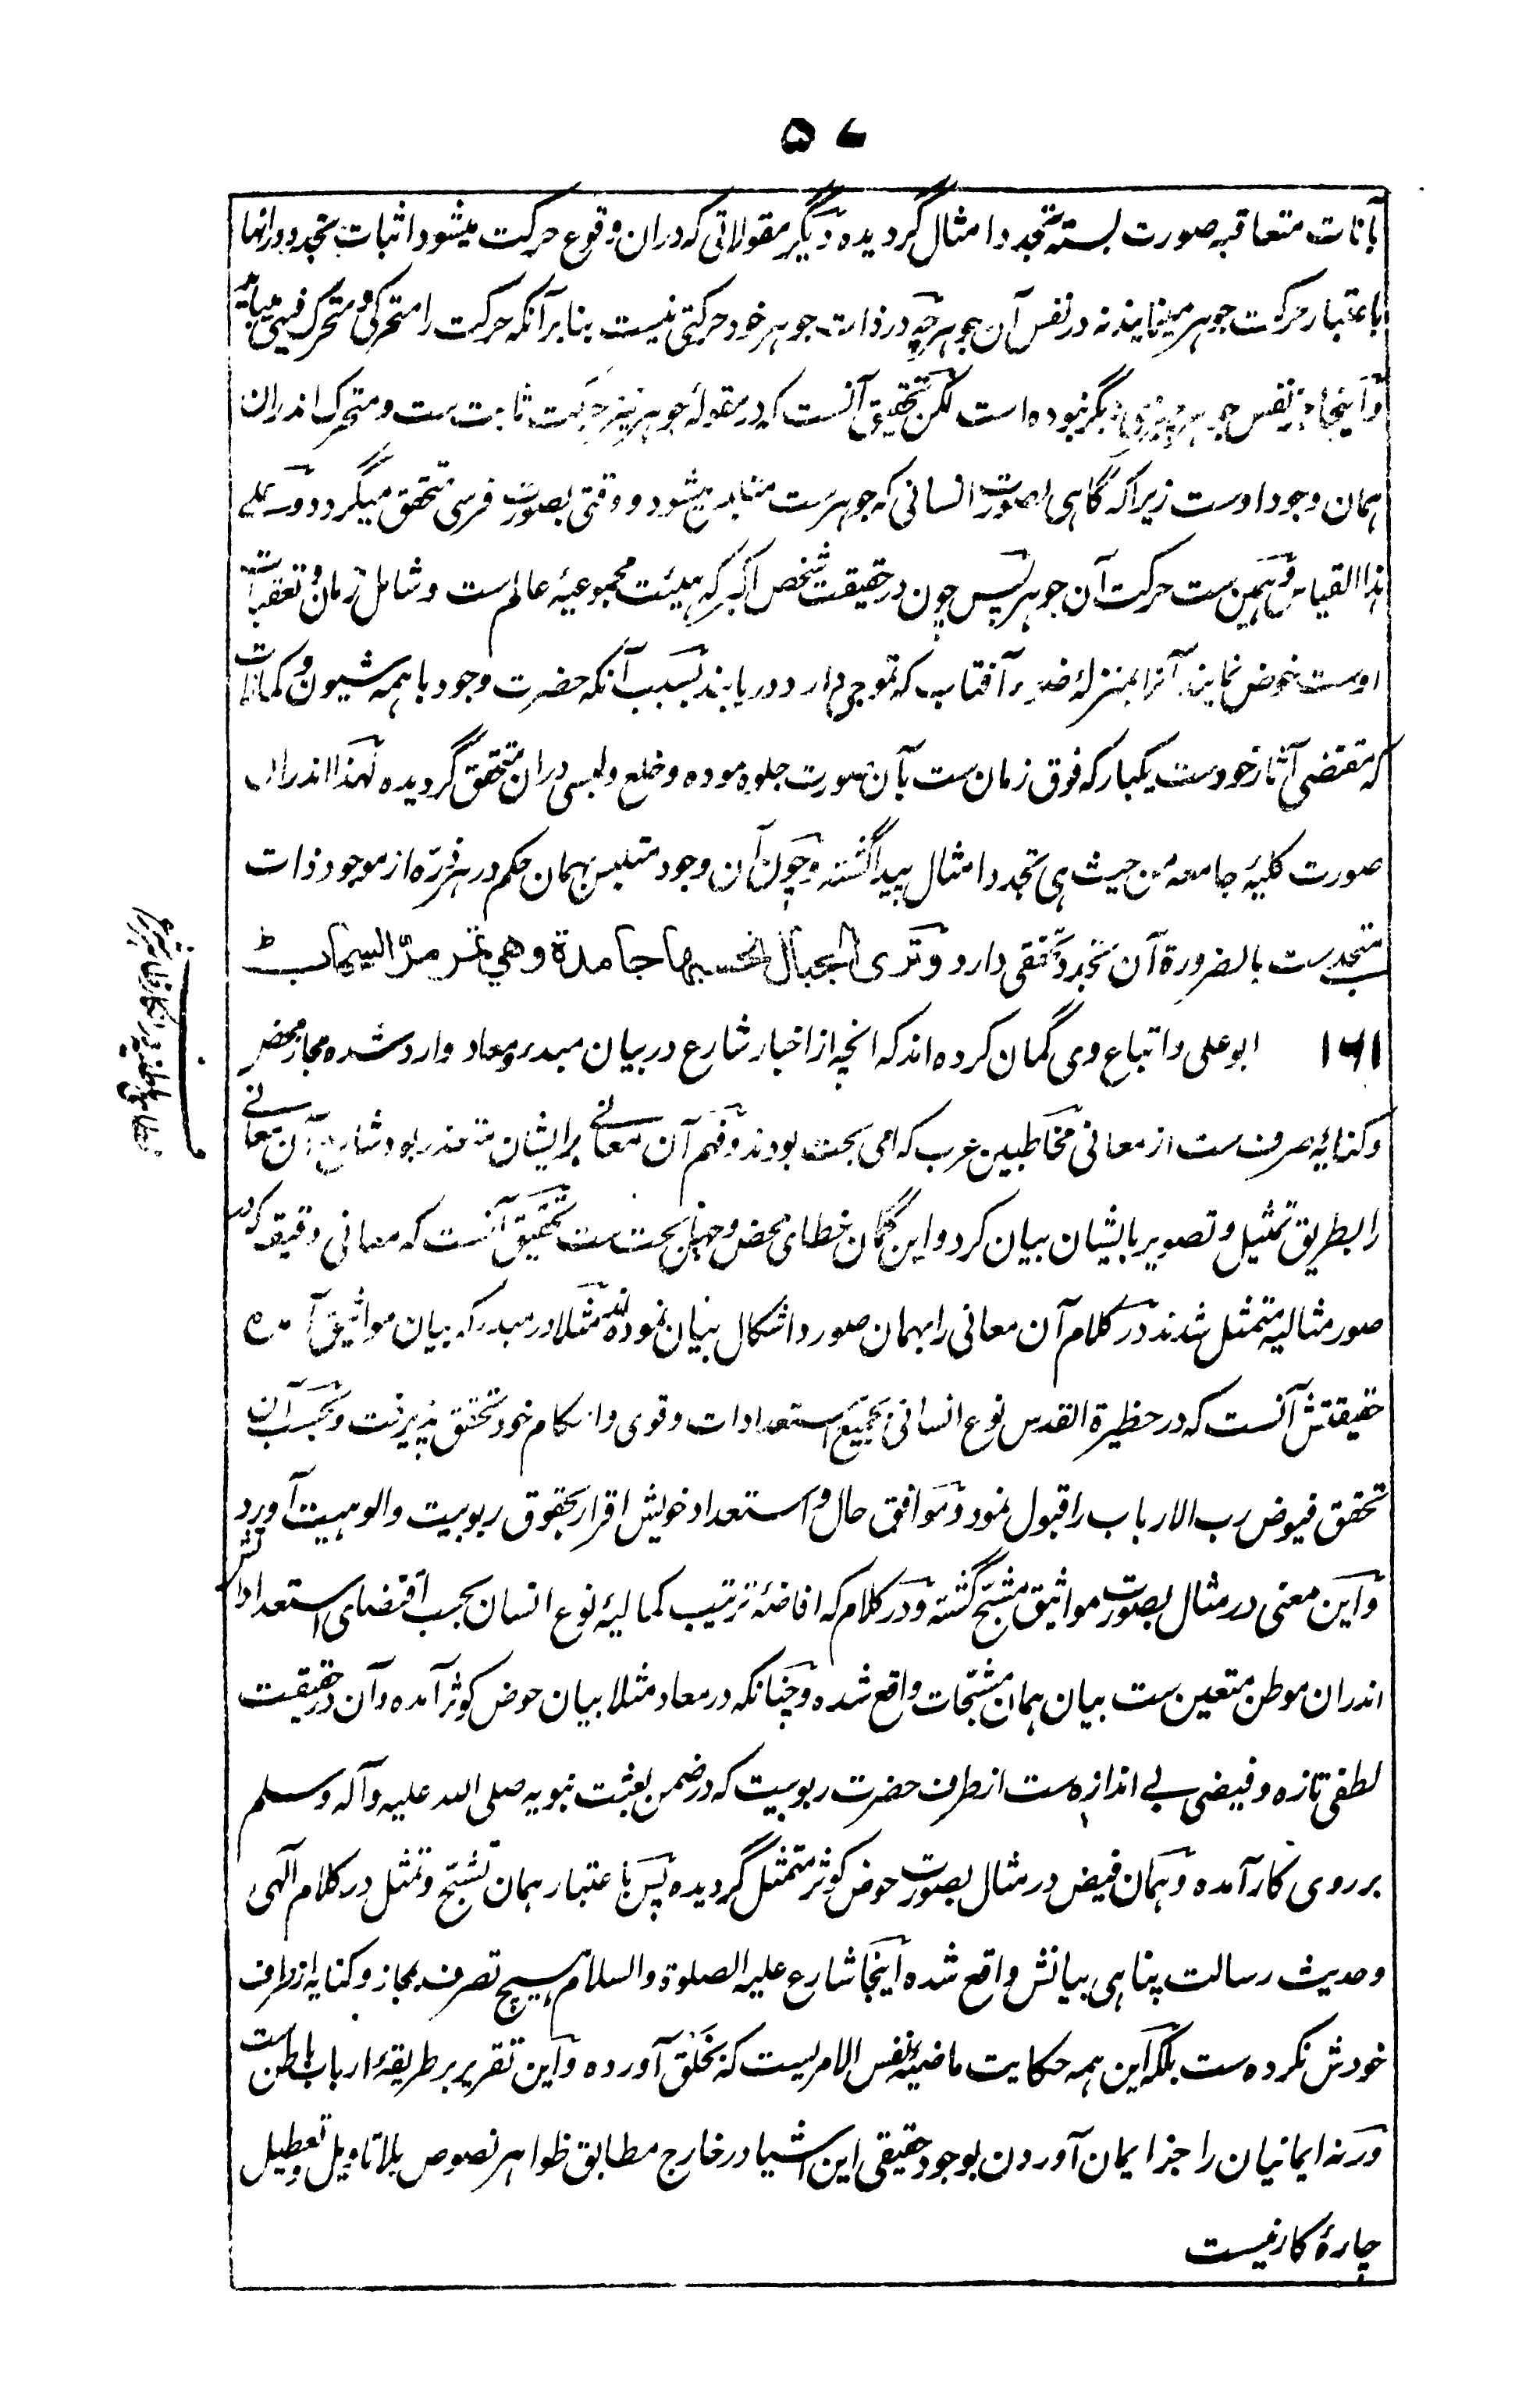 ۵۷
بآنات متعاقبه صورت بسته تجدد امثال گردیده و دیگر مقولاتی که دران وقوع حرکت میشود اثبات تجدد درانها
باعتبار حرکت جوهر مینمایند نه در نفس آن جوهر چه در ذات جوهر خود حرکتی نیست بنا برآنکه حرکت را متحرکی و متحرک فیهی میباید
و اینجا جز نفس جوهر چیزی دیگر نبوده است لکن تحقیق آنست که در مقولهٔ جوهر نیز حرکت ثابت ست و متحرک اندران
همان وجود اوست زیراکه گاهی بصورت انسانی که جوهرست متلبس میشود و وقتی بصورت فرسی متحقق میگردد و علی
هذا القیاس و همین ست حرکت آن جوهر پس چون در حقیقت شخص اکبر که هیئت مجموعیهٔ عالم ست و شامل زمان و تعقبات
اوست خوض نمایند آنرا بمنزلهٔ ضوء آفتاب که تموجی دارد دریابند بسبب آنکه حضرت وجود با همه شیون و کمالات
که مقتضی آثار خودست یکبار که فوق زمان ست بآن صورت جلوه نموده و خلع و لبسی دران متحقق گردیده لهذا اندران
صورت کلیهٔ جامعه من حیث هی تجدد امثال پیدا گشته و چون آن وجود متلبس بهمان حکم در هر ذرّه از موجودات
متجدد ست بالضرورة آن تجدد تحققی دارد وَتَرَى الجِبَالَ تحسبها جامدة وهي تمر مرّ السحاب ط
۱۶۱ ابو علی و اتباع وی گمان کرده اند که انچه از اخبار شارع در بیان مبدء و معاد وارد شده مجاز محض
و کنایهٔ صرف ست از معانی مخاطبین عرب که امی بحت بودند و فهم آن معانے برایشان متعذر بود شارع آن معانے
را بطریق تمثیل و تصویر بایشان بیان کرد و این گمان خطای محض و جهل بحت ست تحقیق آنست که معانی دقیقه که در
صور مثالیه متمثل شدند در کلام آن معانی را بهمان صور و اشکال بیان نموده‌اند مثلا در مبدء که بیان مواثیق آمده
حقیقتش آنست که در حظیرة القدس نوع انسانی بجمیع استعدادات و قوی و احکام خود تحقق پذیرفت و بحسب آن
تحقق فیوض رب الارباب را قبول نمود و موافق حال و استعداد خویش اقرار بحقوق ربوبیت و الوهیت آورد
و این معنی در مثال بصورت مواثیق متشبح گشته و در کلام که افاضهٔ ترتیب کمالیهٔ نوع انسان بحسب اقتضای استعداداتش
اندران موطن متعین ست بیان همان متشبحات واقع شده و چنانکه در معاد مثلا بیان حوض کوثر آمده و آن در حقیقت
لطفی تازه و فیضی بے اندازه ست از طرف حضرت ربوبیت که در ضمن بعثت نبویه صلی الله علیه و آله و سلم
بر روی کار آمده و همان فیض در مثال بصورت حوض کوثر متمثل گردیده پس باعتبار همان تشبّح و تمثل در کلام الهی
و حدیث رسالت پناهی بیانش واقع شده اینجا شارع علیه الصلوة والسلام هیچ تصرف بمجاز و کنایه از طرف
خودش نکرده ست بلکه این همه حکایت نفس الامریست که بخلق آورده و این تقریر بر طریقهٔ ارباب باطن است
ورنه ایمانیان را جز ایمان آوردن بوجود حقیقی این اشیا در خارج مطابق ظواهر نصوص بلا تاویل و تعطیل
چارهٔ کار نیست